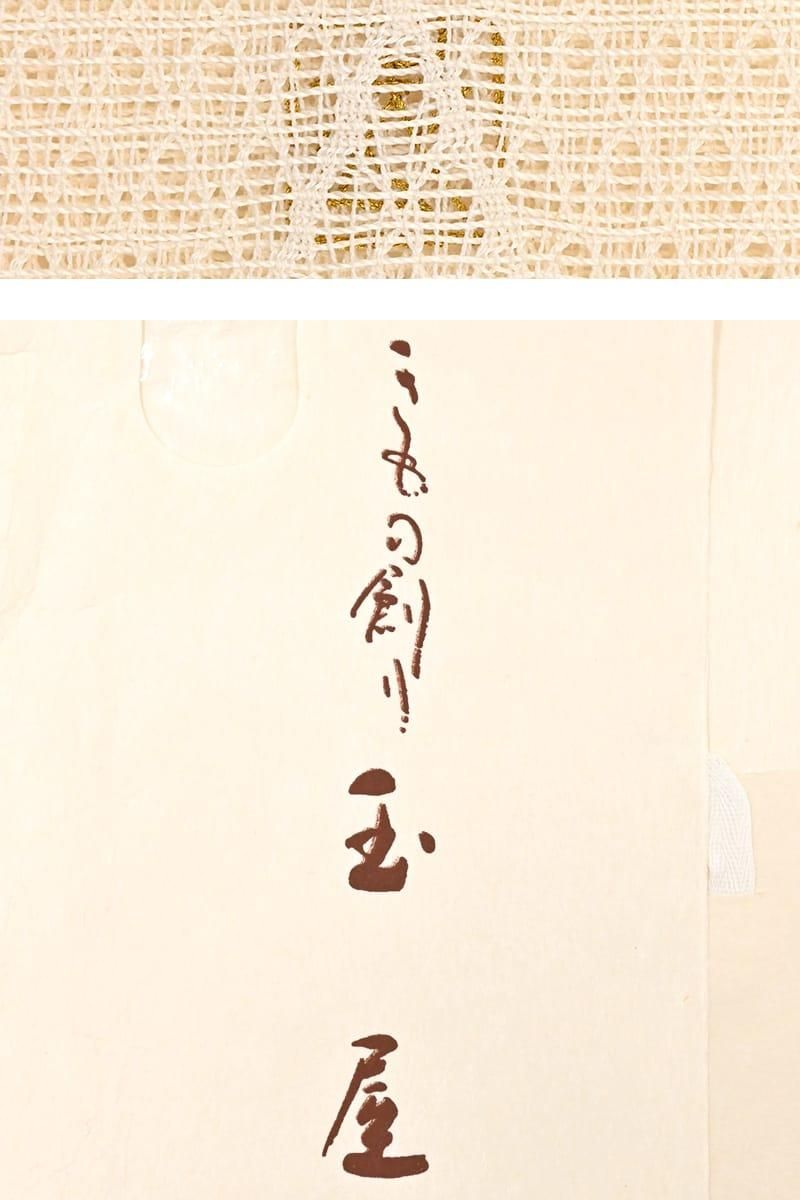 きもの創り
玉屋